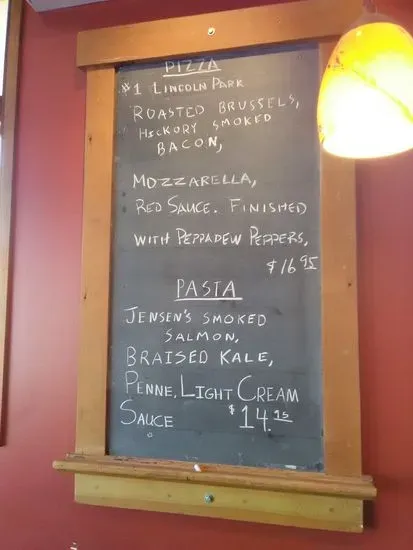 PIZZA
$1 LINCOLN PARK
ROASTED BRUSSELS,
HICKORY SMOKED
BACON,
MOZZARELLA,
RED SAUCE. FINISHED
WITH PEPPADEW PEPPERS,
$16.95
PASTA
JENSEN'S SMOKED
SALMON,
BRAISED KALE,
PENNE, LIGHT CREAM
SAUCE $14.95